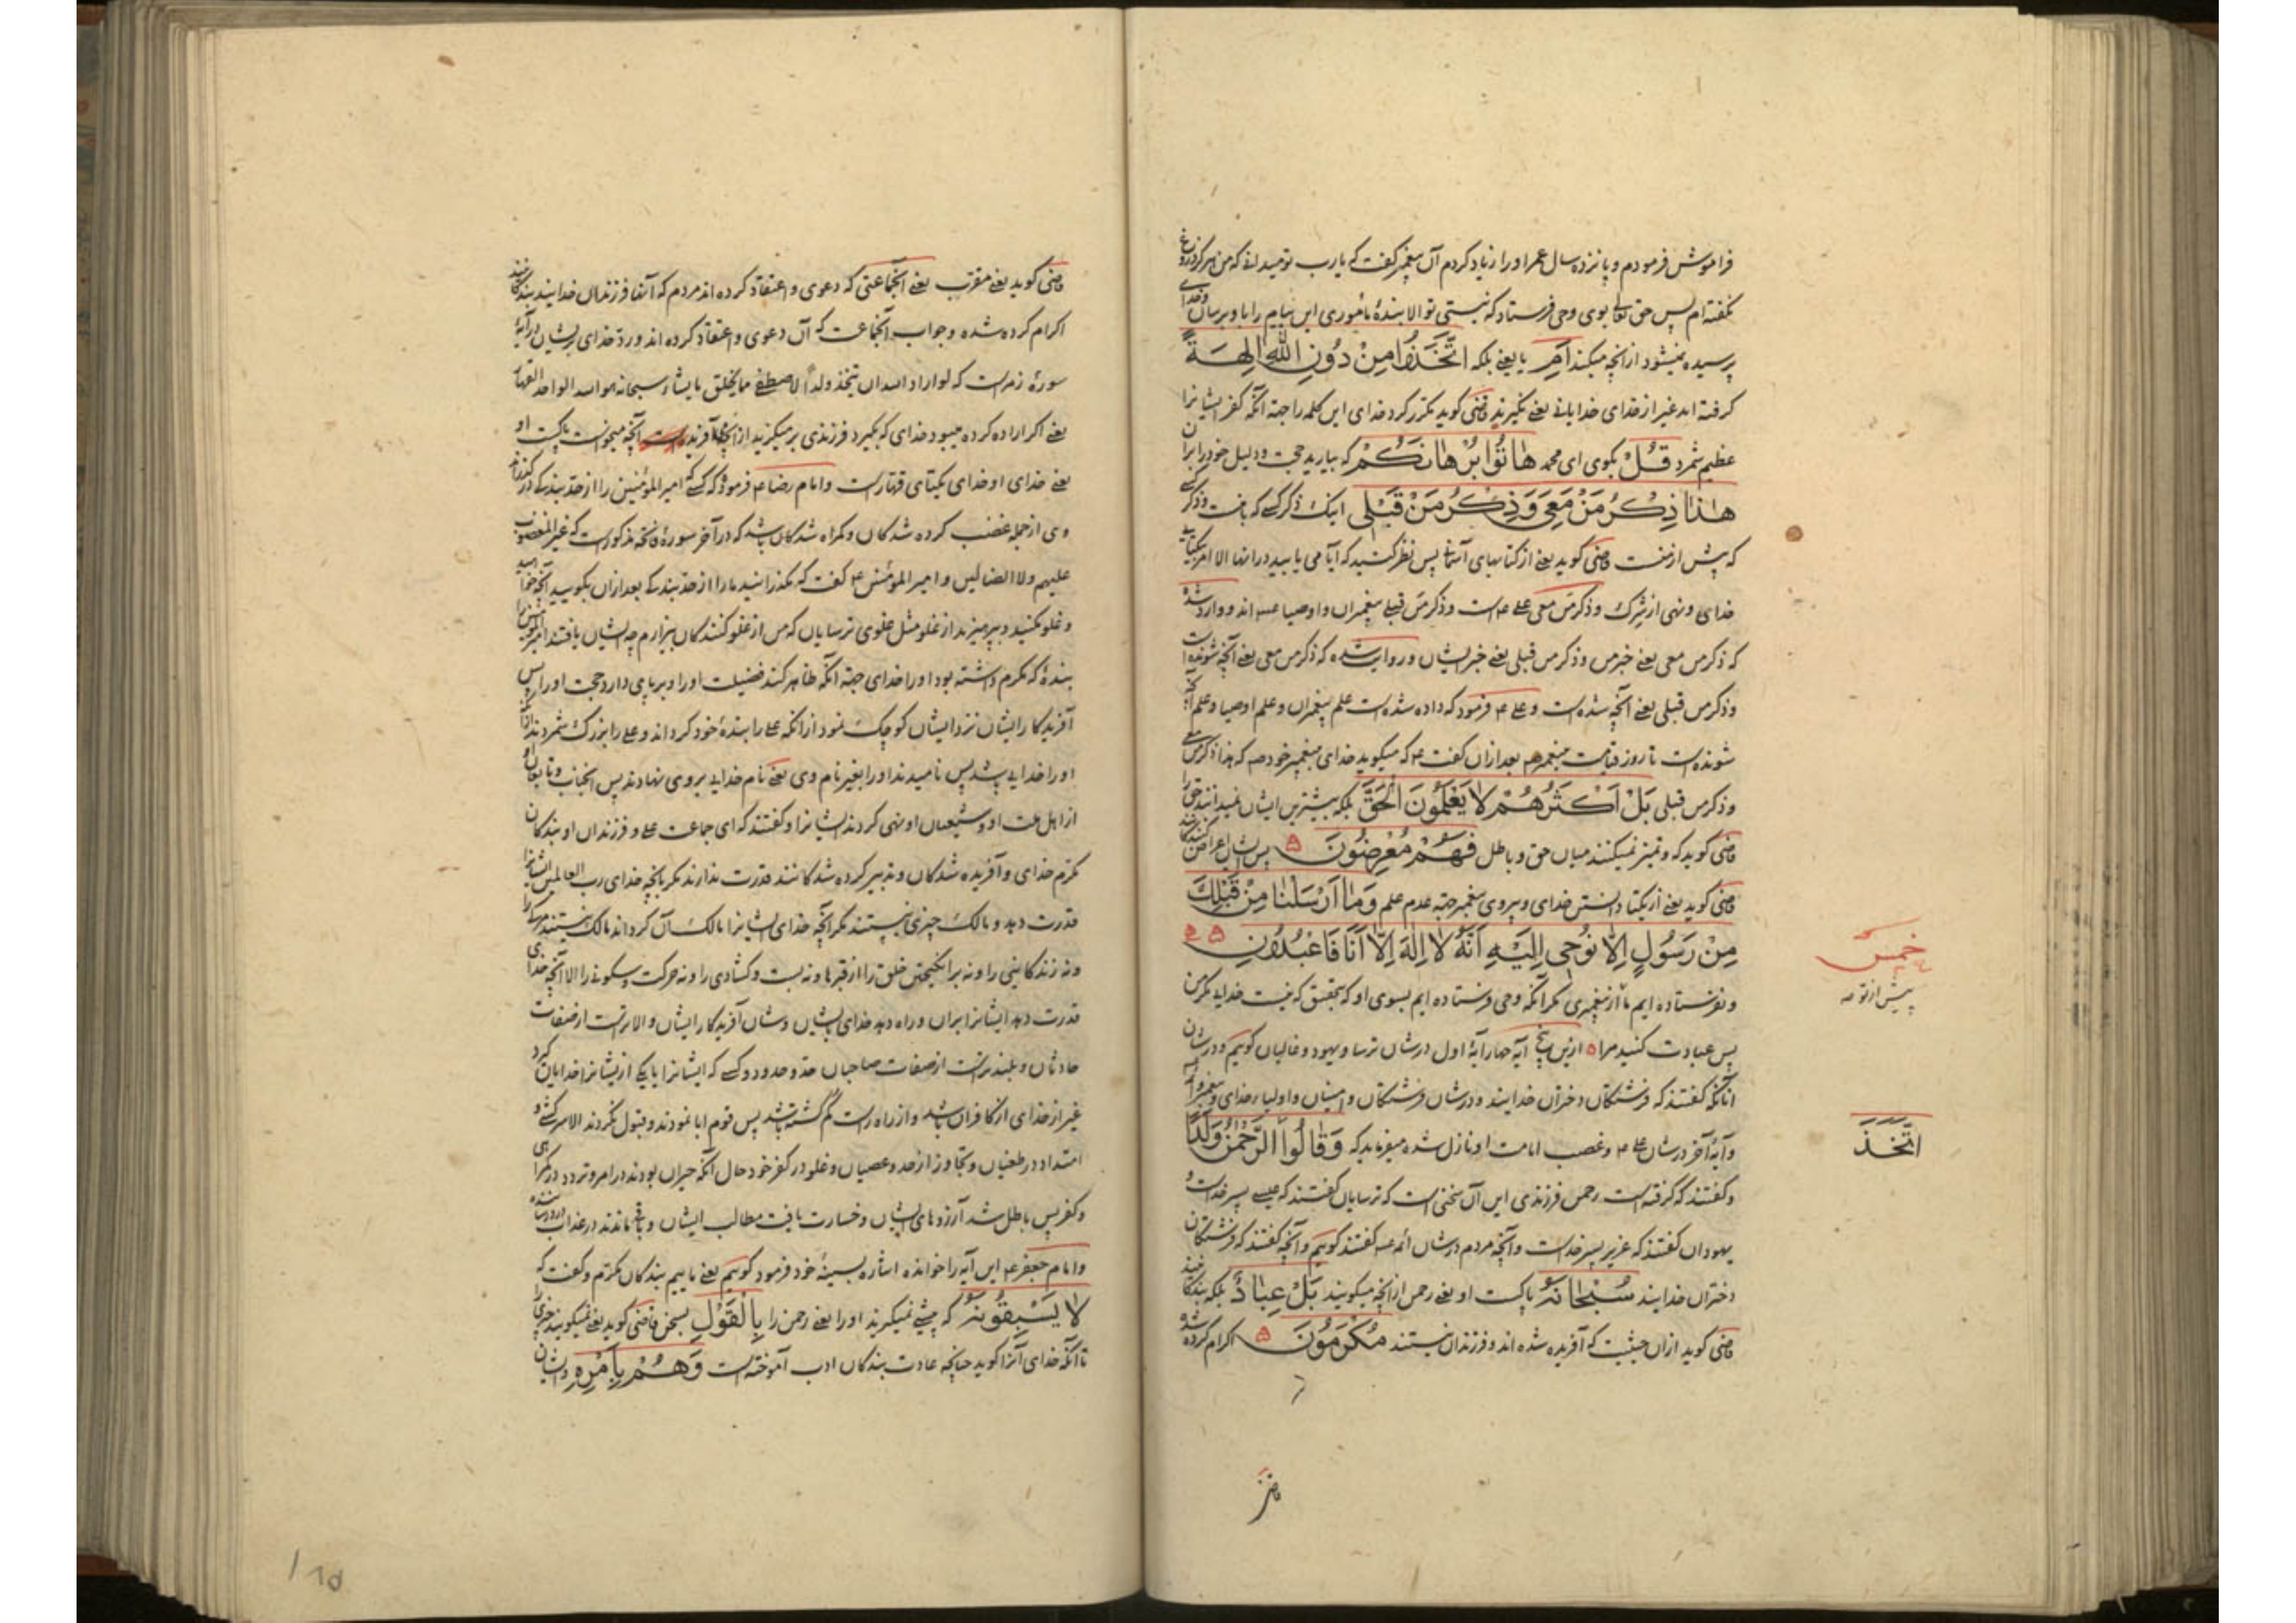 فراموش فرمودم و پانزده سال عمر او را زیاد کردم آن پیغمبر گفت که یا رب تو میدانی که من هرگز دروغ
نکفته ام پس حق تعالی بوی وحی فرستاد که نیستی تو الا بندهٔ مأموری این پیام را باو برسان و خدای
پرسیده نمیشود از انچه میکند اَمِ یا یعنی بلکه اتَّخَذُوا مِنْ دُونِ اللّهِ الِهَةً
کرفته اند غیر از خدای خدایانی یعنی نکیرند قاضی کوید مکرر کرد خدای این کلمه را جهة آنکه کفر ایشانرا
عظیم شمرد قُلْ بکوی ای محمد هاتُوا بُرْهانَكُمْ که بیارید حجت و دلیل خود را بران
هٰذا ذِكْرُ مَنْ مَعِیَ وَ ذِكْرُ مَنْ قَبْلی اینک ذکر کسی که با منست و ذکر کسی
که پیش از منست قاضی کوید یعنی از کتابهای آسمانی پس نظر کنید که آیا می یابید در انها الا امر بیکتایی
خدای و نهی از شرک و ذکر من معی علی ع است و ذکر من قبلی پیغمبران و اوصیا عم اند و وارد شده
که ذکر من معی یعنی خبر من و ذکر من قبلی یعنی خبر ایشان و روایت شده که ذکر من معی یعنی آنچه شونده است
و ذکر من قبلی یعنی آنچه شده است و علی ع فرمود که داده شده است علم پیغمبران و علم اوصیا و علم آنچه
شونده است تا روز قیامت پیغمبر ص بعد ازان کفت ع که میکوید خدای پیغمبر خود ص که هذا ذکر من معی
و ذکر من قبلی بَلْ اَكْثَرُهُمْ لا یَعْلَمُونَ الْحَقَّ بلکه بیشترین ایشان نمیدانند حق را
قاضی کوید که و تمیز نمیکنند میان حق و باطل فَهُمْ مُعْرِضُونَ ۵ پس ایشان اعراض کنندکانند
قاضی کوید یعنی از یکتا دانستن خدای و پیروی پیغمبر جهة عدم علم وَ ما اَرْسَلْنا مِنْ قَبْلِكَ
مِنْ رَسُولٍ اِلّا نُوحی اِلَیْهِ اَنَّهُ لا اِلٰهَ اِلّا اَنَا فَاعْبُدُونِ ۵
و نفرستاده ایم ما از پیغمبری مکر آنکه وحی فرستاده ایم بسوی او که بتحقیق که نیست خدایی مکر من
پس عبادت کنید مرا ۵ ازین پنج آیه چهار آیهٔ اول در شان ترسا و یهود و غالیان کوییم و در شان
انانکه کفتند که فرشتکان دختران خدایند و در شان فرشتکان و امینان و اولیاء خدای و پیغمبر و آیه
و آیهٔ آخر در شان علی ع و غصب امامت او نازل شده میفرماید که وَ قالُوا اتَّخَذَ الرَّحْمٰنُ وَلَدًا
و کفتند که کرفته است رحمن فرزندی این آن سخنی است که ترسایان کفتند که عیسی پسر خداست و
یهودان کفتند که عزیر پسر خداست و آنچه مردم در شان ائمه عم کفتند کوییم و آنچه کفتند که فرشتکان
دختران خدایند سُبْحانَهُ پاکست او یعنی رحمن از انچه میکویند بَلْ عِبادٌ بلکه بندکانند
قاضی کوید ازان حیثیت که آفریده شده اند و فرزندان نیستند مُكْرَمُونَ ۵ اکرام کرده شده
خمس
پیش از تو
اتَّخَذَ
قاضی
قاضی کوید یعنی مقرب یعنی آنجماعتی که دعوی و اعتقاد کرده اند مردم که آنها فرزندان خدایند بندکانند
اکرام کرده شده و جواب آنجماعت که آن دعوی و اعتقاد کرده اند و رد خدای برایشان در آیهٔ
سورهٔ زمر است که لو اراد الله ان یتخذ ولداً لاصطفی مما یخلق ما یشاء سبحانه هو الله الواحد القهار
یعنی اکر اراده کرده میبود خدای که بکیرد فرزندی بر میکزید از انچه آفریده است آنچه میخواست پاکست او
یعنی خدای او خدای یکتای قهار است و امام رضا ع فرمود که کسی که امیر المؤمنین را از حد بندکی در کذراند
وی از جمله غضب کرده شدکان و کمراه شدکان باشد که در آخر سورهٔ فاتحه مذکور است که غیر المغضوب
علیهم ولا الضالین و امیر المؤمنین ع کفت که مکذرانید ما را از حد بندکی بعد ازان بکویید آنچه خواهید
و غلو مکنید و بپرهیزید از غلو مثل غلوی ترسایان که من از غلو کنندکان بیزارم چه ایشان یافتند امیر المؤمنین را
بندهٔ که مکرم داشته بود او را خدای جهة آنکه ظاهر کند فضیلت او را و برپای دارد حجت او را پس
آفریدکار ایشان نزد ایشان کوچک نمود از انکه علی را بندهٔ خود کرداند و علی را بزرک شمردند از آنکه
او را خدایی باشد پس نامیدند او را بغیر نام وی یعنی نام خدایی بر وی نهادند پس انجناب و تابعان او
از اهل ملت او و شیعیان او نهی کردند ایشانرا و کفتند که ای جماعت علی و فرزندان او بندکان
مکرم خدای و آفریده شدکان و تدبیر کرده شدکانند قدرت ندارند مکر بانچه خدای رب العالمین ایشانرا
قدرت دهد و مالک چیزی نیستند مکر آنچه خدای ایشانرا مالک آن کرداند مالک نیستند مرک را
و نه زندکانی را و نه بر انکیختن خلق را از قبرها و نه بست و کشادی را و نه حرکت و سکونی را الا آنچه خدای
قدرت دهد ایشانرا بران و راه دهد خدای ایشان و شان آفریدکار ایشان والاتر است از صفات
حادثان و بلندتر است از صفات صاحبان حد و محدود و کسی که ایشانرا یا یکی از یشانرا خدایان کیرد
غیر از خدای از کافران باشد و از راه راست کم کشته باشد پس قوم ابا نمودند و قبول نکردند الا سرکشی و
امتداد در طغیان و تجاوز از حد و عصیان و غلو در کفر خود حال آنکه حیران بودند در امر و تردد در کمراهی
و کفر پس باطل شد آرزوهای ایشان و خسارت یافت مطالب ایشان و باقی ماندند در عذاب درد رساننده
و امام جعفر ع این آیه را خوانده اشاره بسینهٔ خود فرمود کوییم یعنی ماییم بندکان مکرم و کفت که
لا یَسْبِقُونَهُ که پیشی نمیکیرند او را یعنی رحمن را بِالْقَوْلِ بسخن قاضی کوید یعنی نمیکویند چیزی را
تا آنکه خدای آنرا کوید چنانچه عادت بندکان ادب آموخته است وَ هُمْ بِاَمْرِهِ و ایشان